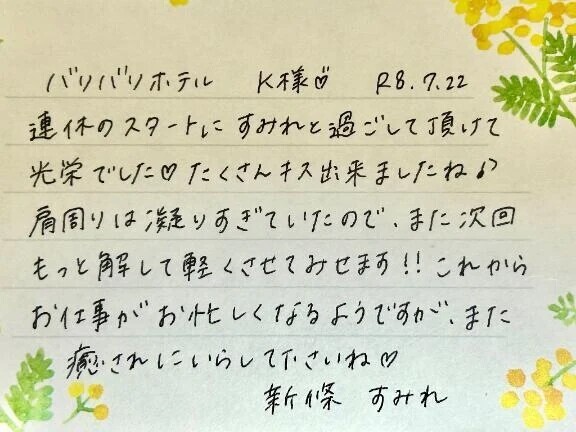 バリバリホテル K様♡ R8.7.22
連休のスタートにすみれと過ごして頂けて
光栄でした♡たくさんキス出来ましたね♪
肩周りは凝りすぎていたので、また次回
もっと解して軽くさせてみせます!!これから
お仕事がお忙しくなるようですが、また
癒されにいらして下さいね♡
新條 すみれ